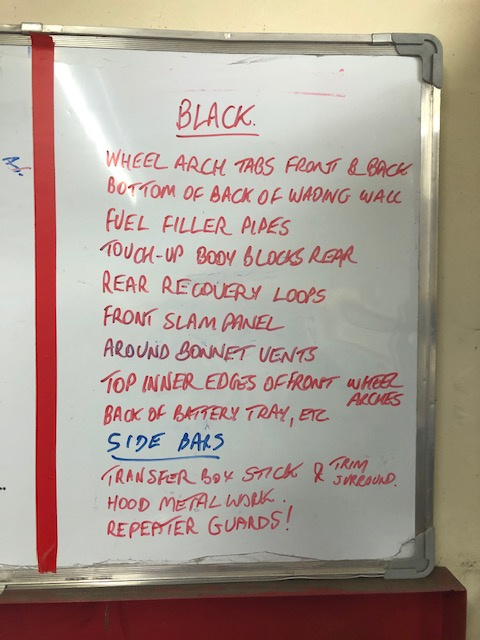 BLACK.
WHEEL ARCH TABS FRONT & BACK
BOTTOM OF BACK OF WADING WALL
FUEL FILLER PIPES
TOUCH-UP BODY BLOCKS REAR
REAR RECOVERY LOOPS
FRONT SLAM PANEL
AROUND BONNET VENTS
TOP INNER EDGES OF FRONT WHEEL ARCHES
BACK OF BATTERY TRAY, ETC
SIDE BARS
TRANSFER BOX STICK & TRIM SURROUND.
HOOD METAL WORK.
REPEATER GUARDS!